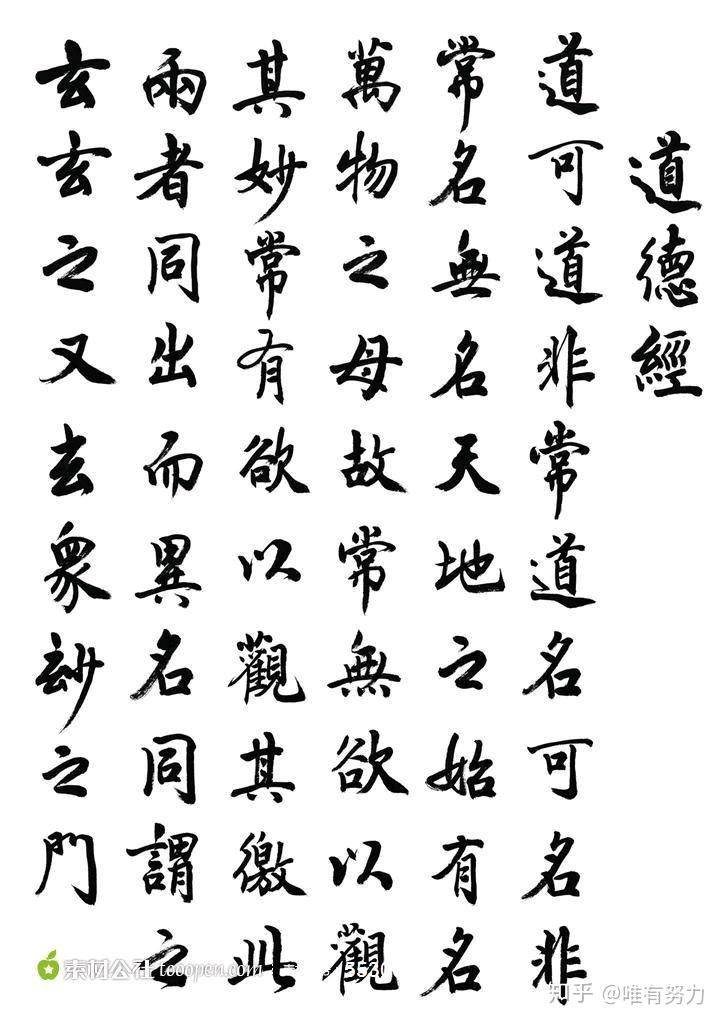 道德經
道可道非常道名可名非
常名無名天地之始有名
萬物之母故常無欲以觀
其妙常有欲以觀其徼此
兩者同出而異名同謂之
玄玄之又玄眾玅之門
素材公社 tooopen.com
知乎 @唯有努力